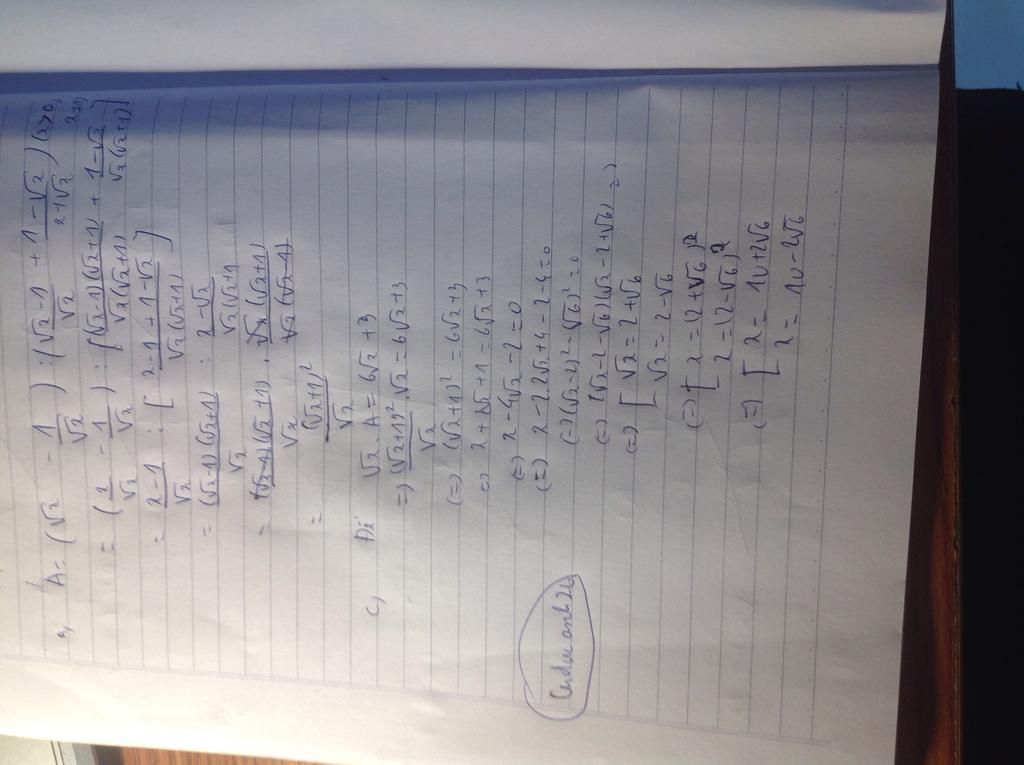 a, A = (√x - 1/√x) : (√x-1/√x + 1-√x/x+√x) (x>0, x≠1)
= (x/√x - 1/√x) : [(√x-1)(√x+1)/√x(√x+1) + 1-√x/√x(√x+1)]
= x-1/√x : [x-1+1-√x/√x(√x+1)]
= (√x-1)(√x+1)/√x : x-√x/√x(√x+1)
= (√x-1)(√x+1)/√x . √x(√x+1)/√x(√x-1)
= (√x+1)²/√x
c, Để √x.A = 6√x+3
=> (√x+1)²/√x . √x = 6√x+3
(=) (√x+1)² = 6√x+3
(=) x+2√x+1 = 6√x+3
(=) x-4√x-2=0
(=) x-2.2√x+4-2-4=0
(=) (√x-2)²-(√6)²=0
(=) (√x-2-√6)(√x-2+√6)=0
(=) [√x = 2+√6
√x = 2-√6
(=) [x = (2+√6)²
x = (2-√6)²
(=) [x = 10+2√6
x = 10-2√6